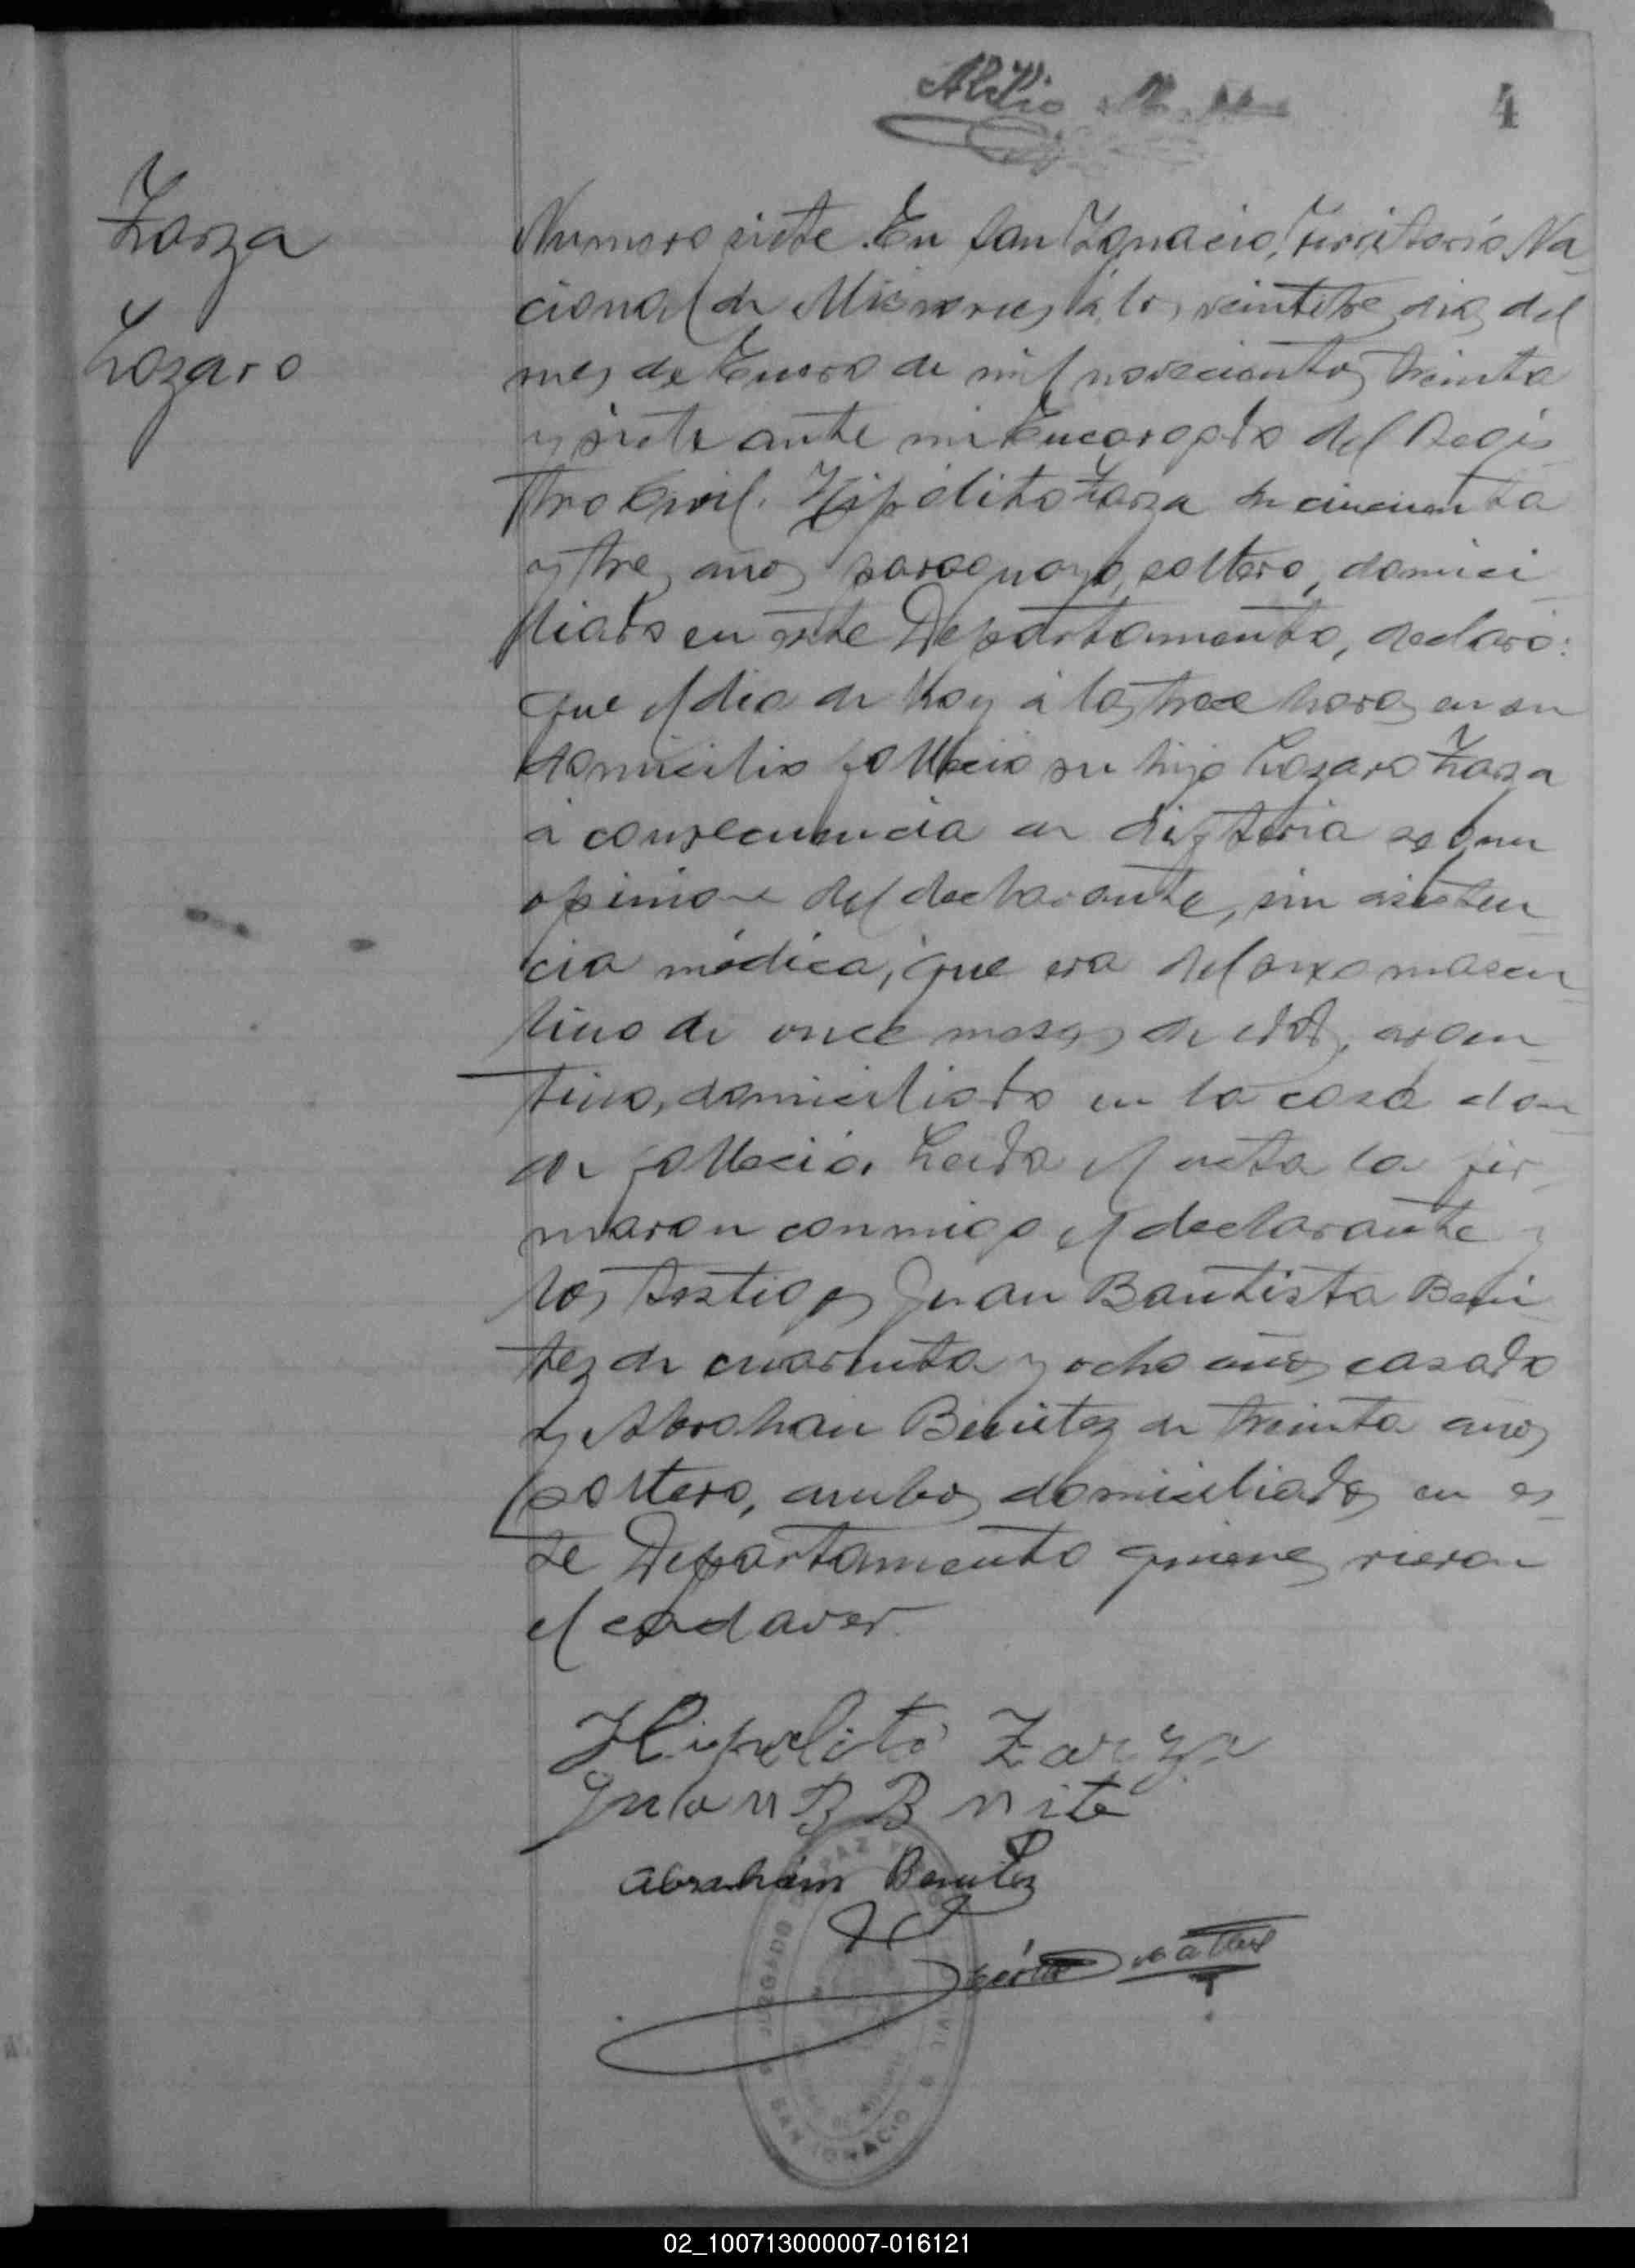 4
Zarza
Lazaro
Numero siete. En San Ignacio, Territorio Na
cional de Misiones, á los veintitres dias del
mes de Enero de mil novecientos treinta
y siete ante mi Encargado del Regis
tro Civil. Hipólito Zarza de cincuenta
y tres años, paraguayo, soltero, domici
liado en este Departamento, declaró:
que el dia de hoy á las trece horas en su
domicilio falleció su hijo Lazaro Zarza
á consecuencia de difteria segun
opinion del declarante, sin asisten
cia médica, que era del sexo mascu
lino de once meses de edad, argen
tino, domiciliado en la casa don
de falleció. Leida el acta la fir
maron conmigo el declarante y
los testigos Juan Bautista Beni
tez de cuarenta y ocho años casado
y Abrahan Benitez de treinta años
soltero, ambos domiciliados en es
te Departamento quienes vieron
el cadaver.
Hipolito Zarza
Juan B Bnite
Abraham Benitez
JUZGADO DE PAZ
CIVIL
SAN IGNACIO
02_100713000007-016121